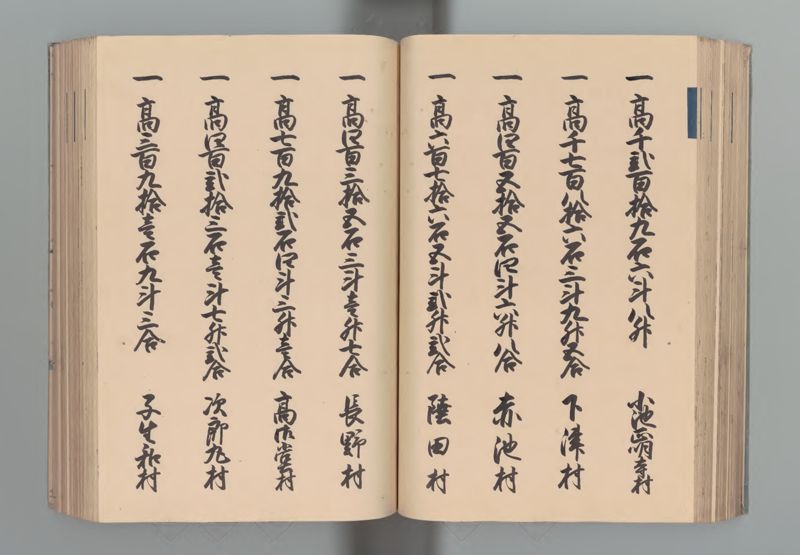 一 高千弐百拾九石六斗八升 小池正明寺村
一 高千七百八拾六石三斗九升五合 下津村
一 高四百五拾五石四斗六升八合 赤池村
一 高六百七拾六石五斗弐升弐合 陸田村
一 高四百三拾五石三斗壱升七合 長野村
一 高七百九拾弐石四斗三升壱合 高御堂村
一 高四百弐拾三石壱斗七升弐合 次郎丸村
一 高三百九拾壱石九斗三合 子生和村